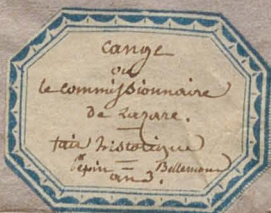 Cange
ou
le commissionnaire
de Lazare.
fait historique
Pépin Bellemont
an 3.